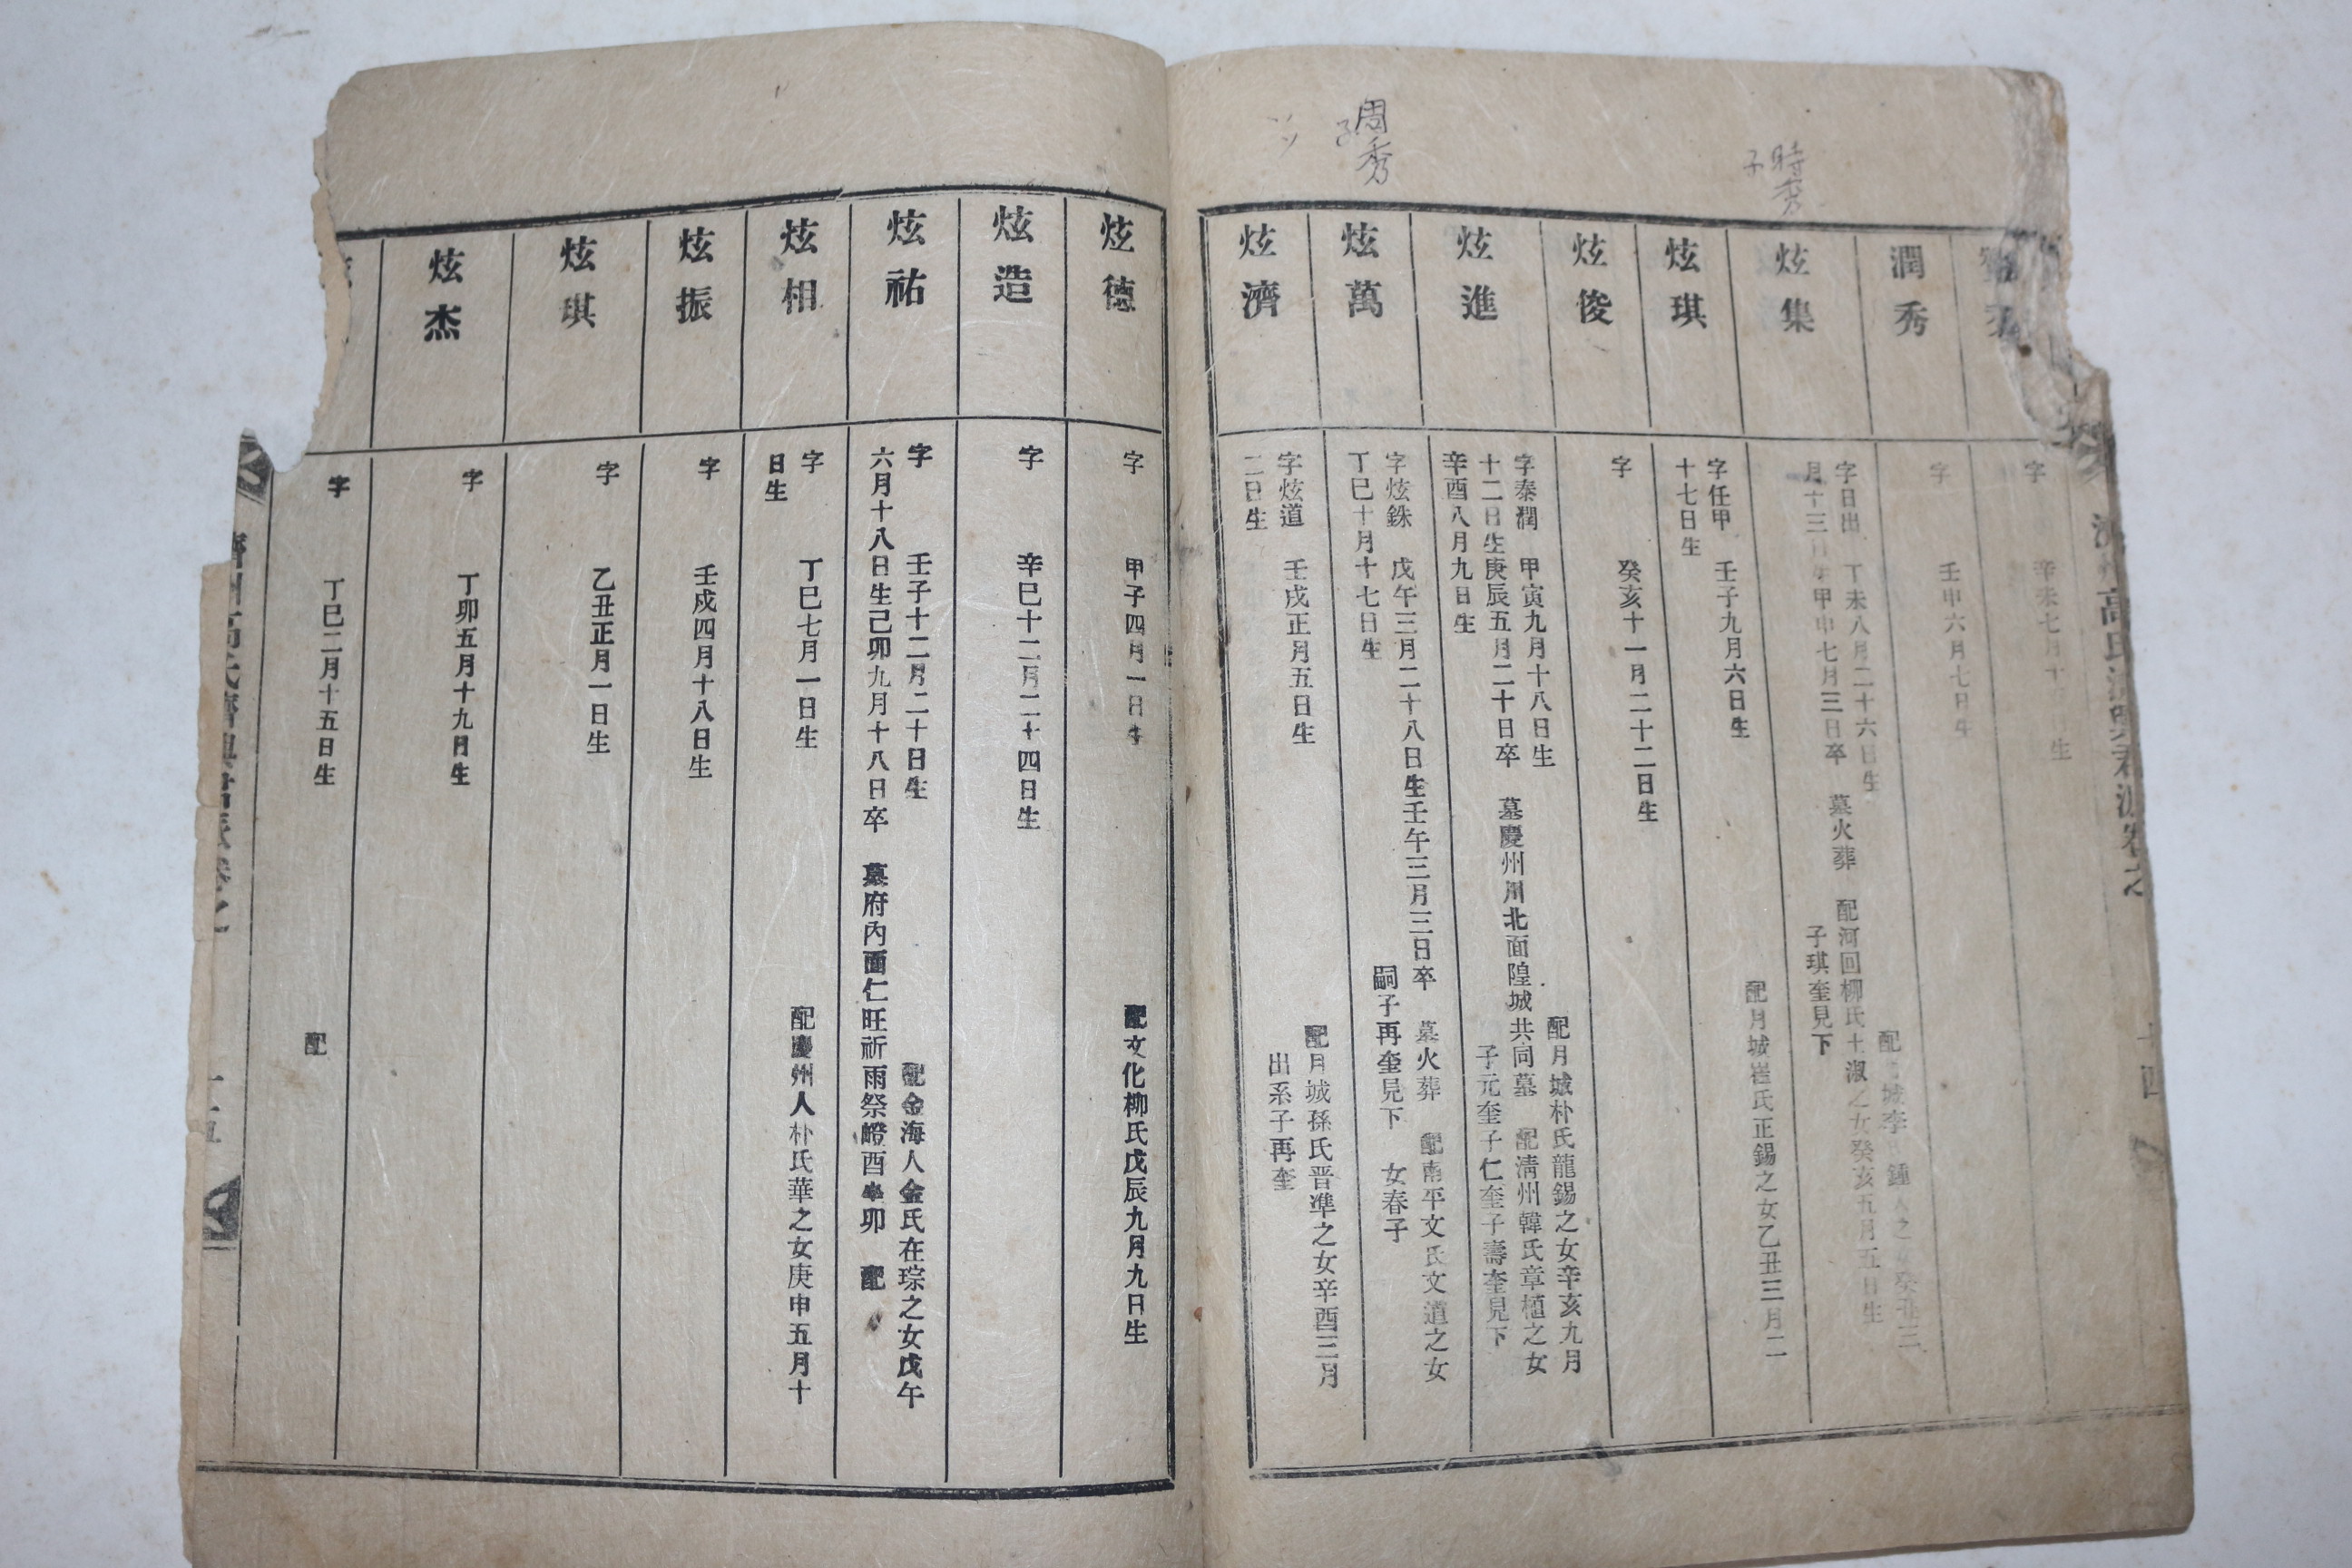 周秀
子
時秀
子
秀
字
辛未七月十
日生
潤秀
字
壬申六月七日生
炫集
字日出
丁未八月二十六日生
月十三日生甲申七月三日卒
墓火葬
配河回柳氏士淑之女癸亥五月五日生
子琪奎見下
炫琪
字任甲
壬子九月六日生
配月城崔氏正錫之女乙丑三月二
十七日生
炫俊
字
癸亥十一月二十二日生
炫進
字泰潤
甲寅九月十八日生
配月城朴氏龍錫之女辛亥九月
十二日生庚辰五月二十日卒
墓慶州川北面隍城共同墓
配淸州韓氏章植之女
辛酉八月九日生
子元奎子仁奎子壽奎見下
炫萬
字炫銖
戊午三月二十八日生壬午三月三日卒
墓火葬
配南平文氏文道之女
丁巳十月十七日生
嗣子再奎見下
女春子
炫濟
字炫道
壬戌正月五日生
配月城孫氏晋準之女辛酉三月
二日生
出系子再奎
炫德
字
甲子四月一日生
配文化柳氏戊辰九月九日生
炫造
字
辛巳十二月二十四日生
炫祐
字
壬子十二月二十日生
配金海人金氏在琮之女戊午
六月十八日生己卯九月十八日卒
墓府內面仁旺祈雨祭嶝酉坐卯
配
炫相
字
丁巳七月一日生
配慶州人朴氏華之女庚申五月十
日生
炫振
字
壬戍四月十八日生
炫琪
字
乙丑正月一日生
炫杰
字
丁卯五月十九日生
字
丁巳二月十五日生
配
十五